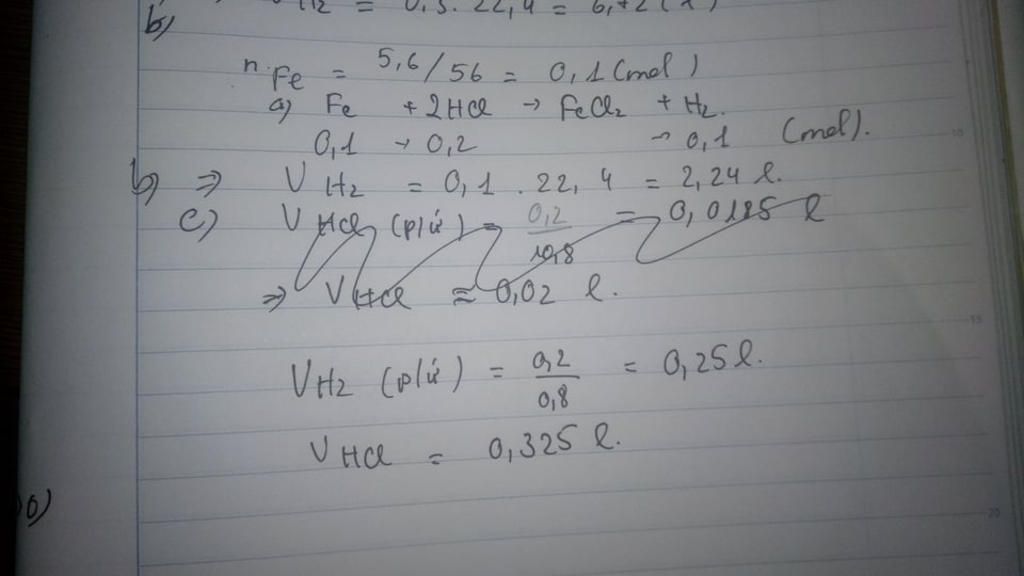 H2 = 0,3. 22,4 = 6,72 (l)
b)
nFe = 5,6/56 = 0,1 (mol)
a) Fe + 2HCl → FeCl2 + H2.
0,1 → 0,2 → 0,1 (mol).
b) ⇒ V H2 = 0,1 . 22,4 = 2,24 l.
c) V HCl (p/ứ) = 0,2 / 10,8 = 0,0185 l
⇒ VHCl ≈ 0,02 l.
VH2 (p/ứ) = 0,2 / 0,8 = 0,25 l.
VHCl = 0,325 l.
10
15
20